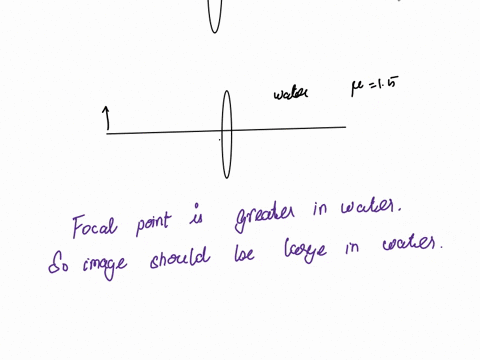 water μ = 1.5
Focal point is greater in water.
So image should be large in water.